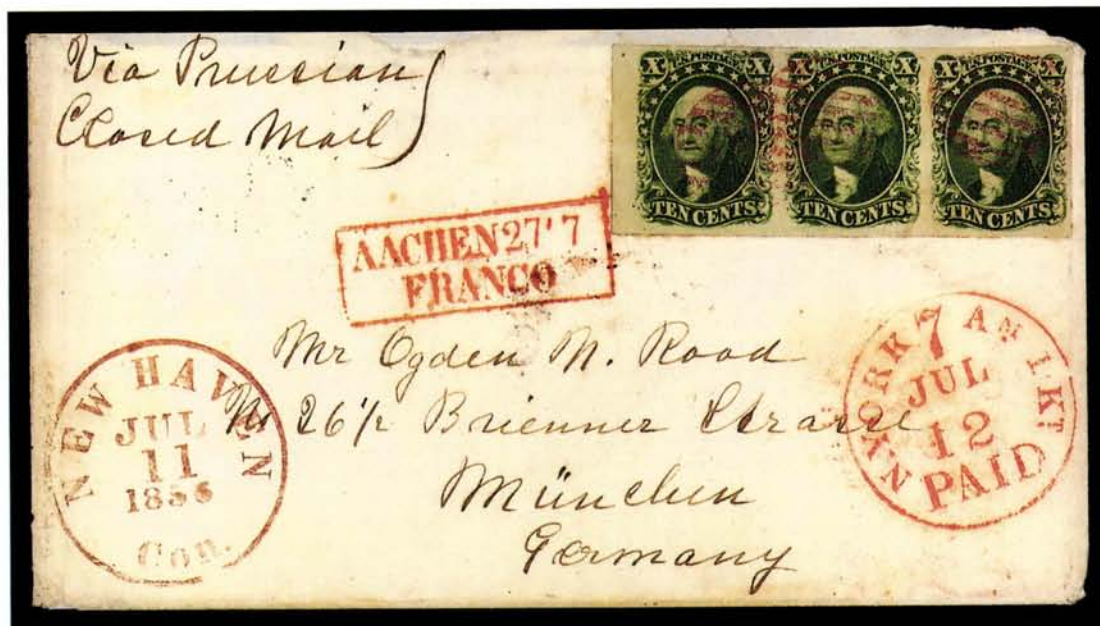 Via Prussian
Closed Mail
X U.S. POSTAGE X
TEN CENTS.
X U.S. POSTAGE X
TEN CENTS.
X U.S. POSTAGE X
TEN CENTS.
AACHEN 27 7
FRANCO
Mr Ogden N. Rood
No 26½ Brienner Strasse
München
Germany
NEW HAVEN
JUL
11
1856
Con.
N YORK AM PKT
7
JUL
12
PAID